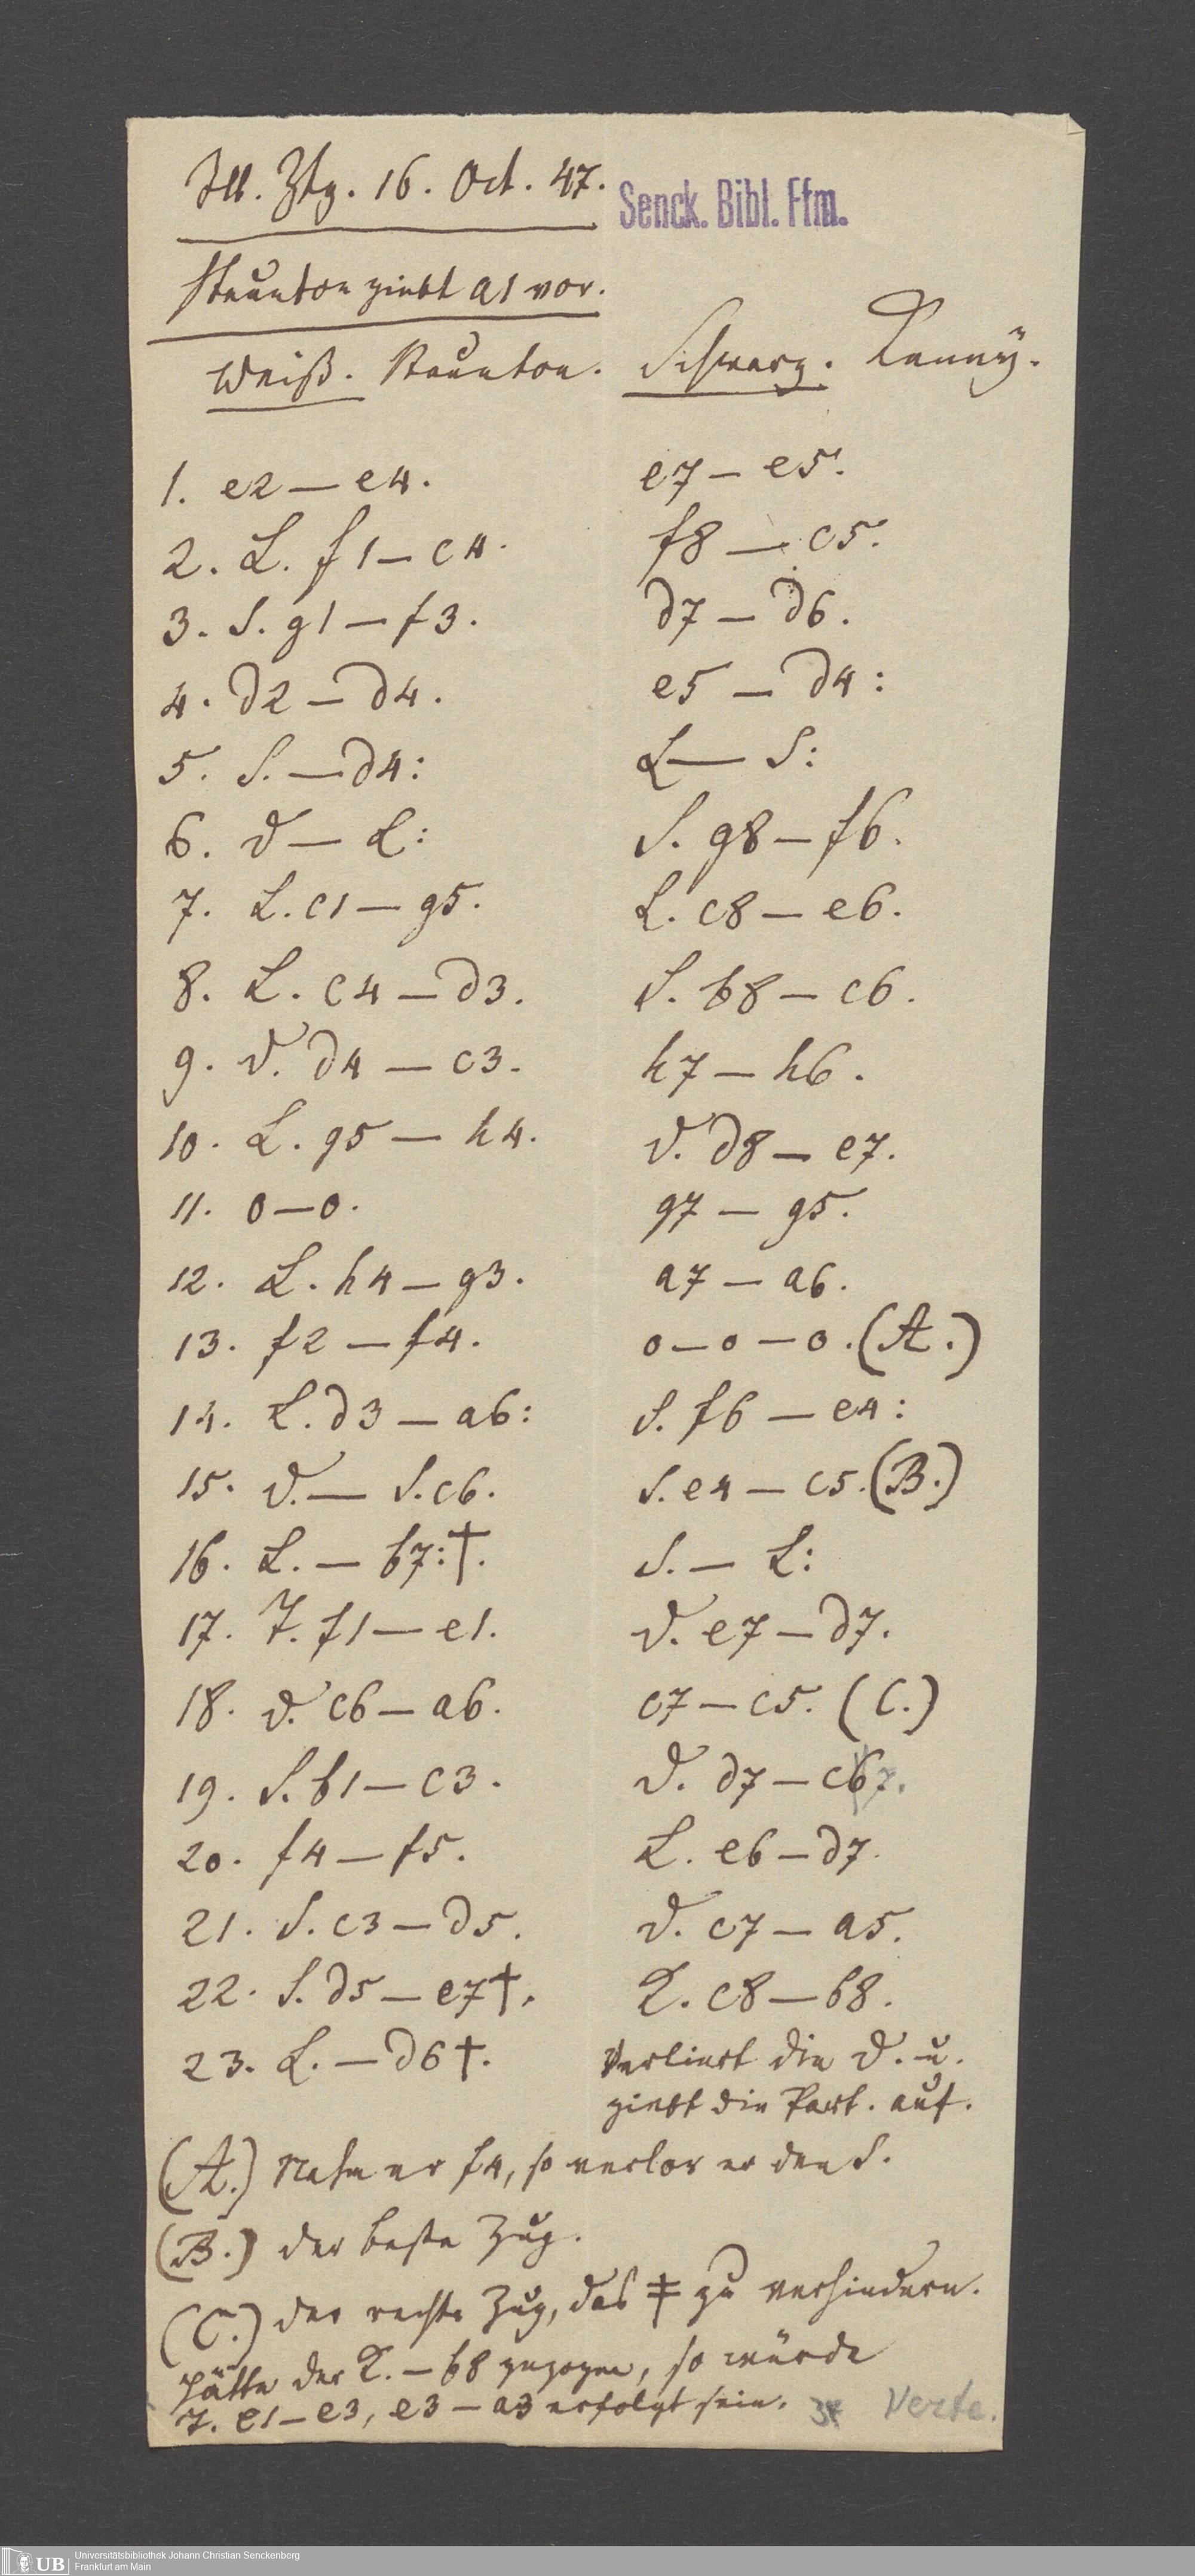 Ill. Ztg. 16. Oct. 47.
Senck. Bibl. Ffm.
Staunton giebt a1 vor.
Weiß. Staunton. Schwarz. Kenny.
1. e2 — e4. e7 — e5.
2. L. f1 — c4. f8 — c5.
3. S. g1 — f3. d7 — d6.
4. d2 — d4. e5 — d4:
5. S. — d4: L — S:
6. D — L: S. g8 — f6.
7. L. c1 — g5. L. c8 — e6.
8. L. c4 — d3. S. b8 — c6.
9. D. d4 — c3. h7 — h6.
10. L. g5 — h4. D. d8 — e7.
11. 0 — 0. g7 — g5.
12. L. h4 — g3. a7 — a6.
13. f2 — f4. 0 — 0 — 0. (A.)
14. L. d3 — a6: S. f6 — e4:
15. D. — S. c6. S. e4 — c5. (B.)
16. L. — b7:†. S. — L:
17. T. f1 — e1. D. e7 — d7.
18. D. c6 — a6. c7 — c5. (C.)
19. S. b1 — c3. D. d7 — c67.
20. f4 — f5. L. e6 — d7.
21. S. c3 — d5. D. c7 — a5.
22. S. d5 — e7†. K. c8 — b8.
23. L. — d6†. Verliert die D. u.
giebt die Part. auf.
(A.) Nahm er f4, so verlor er den S.
(B.) der beste Zug.
(C.) der rechte Zug, das ‡ zu verhindern.
Hätte der K. — b8 gezogen, so würde
T. e1 — e3, e3 — a3 erfolgt sein. Verte.
UB
Universitätsbibliothek Johann Christian Senckenberg
Frankfurt am Main